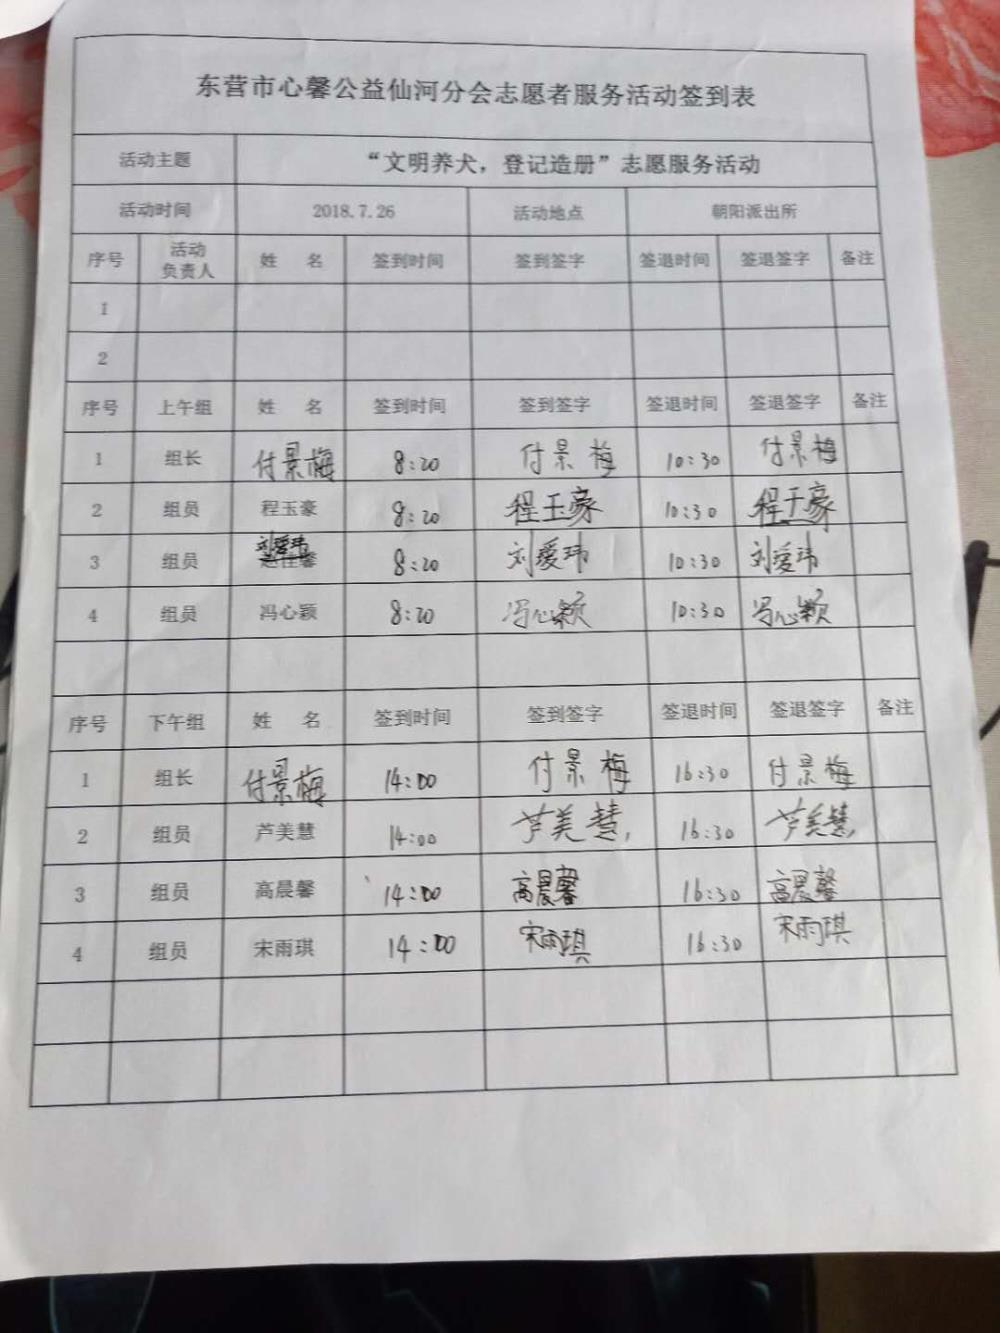 东营市心馨公益仙河分会志愿者服务活动签到表
活动主题 “文明养犬，登记造册”志愿服务活动
活动时间 2018.7.26 活动地点 朝阳派出所
序号 活动负责人 姓 名 签到时间 签到签字 签退时间 签退签字 备注
1
2
序号 上午组 姓 名 签到时间 签到签字 签退时间 签退签字 备注
1 组长 付景梅 8:20 付景梅 10:30 付景梅
2 组员 程玉豪 8:20 程玉豪 10:30 程玉豪
3 组员 刘爱玮 8:20 刘爱玮 10:30 刘爱玮
4 组员 冯心颖 8:20 冯心颖 10:30 冯心颖
序号 下午组 姓 名 签到时间 签到签字 签退时间 签退签字 备注
1 组长 付景梅 14:00 付景梅 16:30 付景梅
2 组员 芦美慧 14:00 芦美慧, 16:30 芦美慧,
3 组员 高晨馨 14:00 高晨馨 16:30 高晨馨
4 组员 宋雨琪 14:00 宋雨琪 16:30 宋雨琪